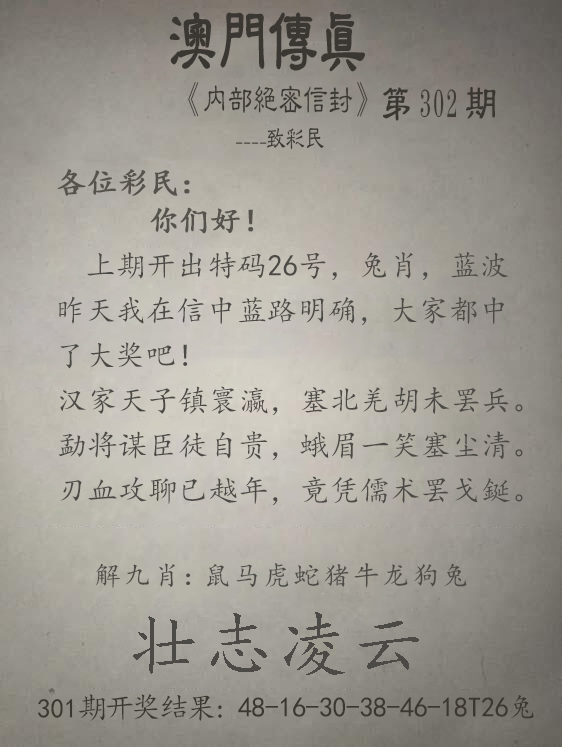 澳門傳真
《内部絕密信封》第302期
----致彩民
各位彩民：
你们好！
上期开出特码26号，兔肖，蓝波
昨天我在信中蓝路明确，大家都中
了大奖吧！
汉家天子镇寰瀛，塞北羌胡未罢兵。
勐将谋臣徒自贵，蛾眉一笑塞尘清。
刃血攻聊已越年，竟凭儒术罢戈鋋。
解九肖：鼠马虎蛇猪牛龙狗兔
壮志凌云
301期开奖结果：48-16-30-38-46-18T26兔